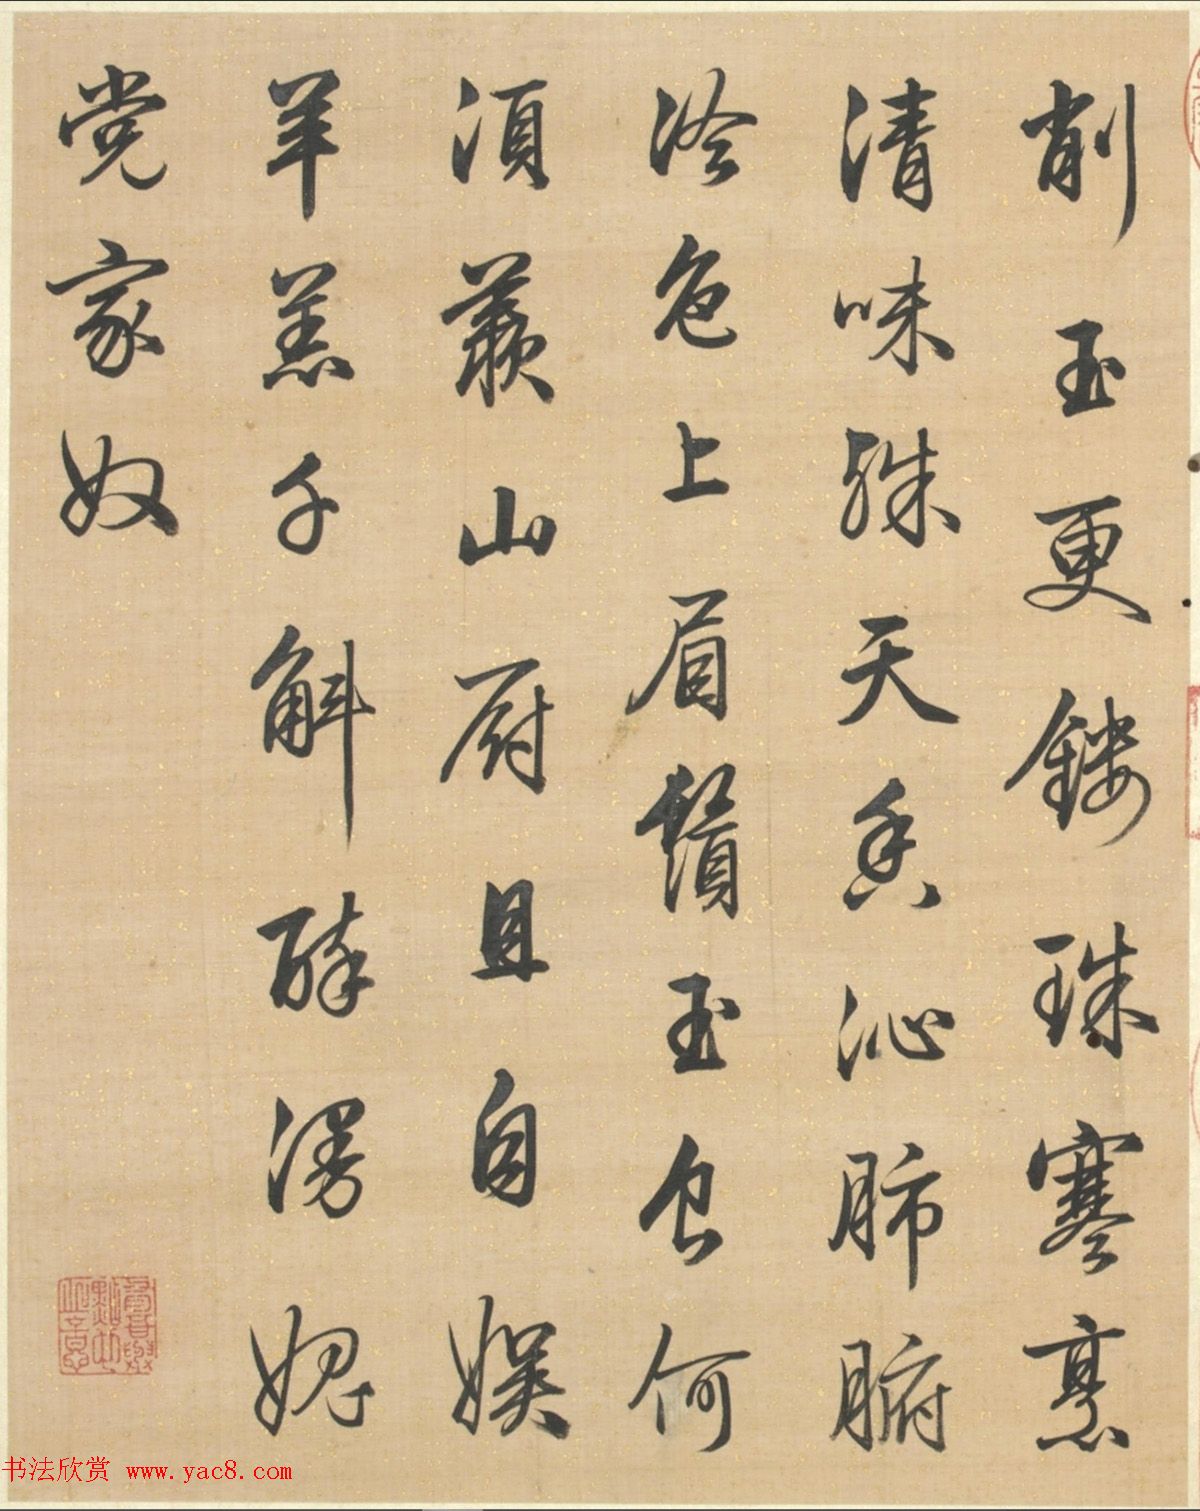 削玉更鏤珠寒烹
清味殊天香沁肺腑
冷色上眉鬚玉食何
須羨山厨且自娛
羊羔千斛醉漫媿
党家奴
书法欣赏 www.yac8.com